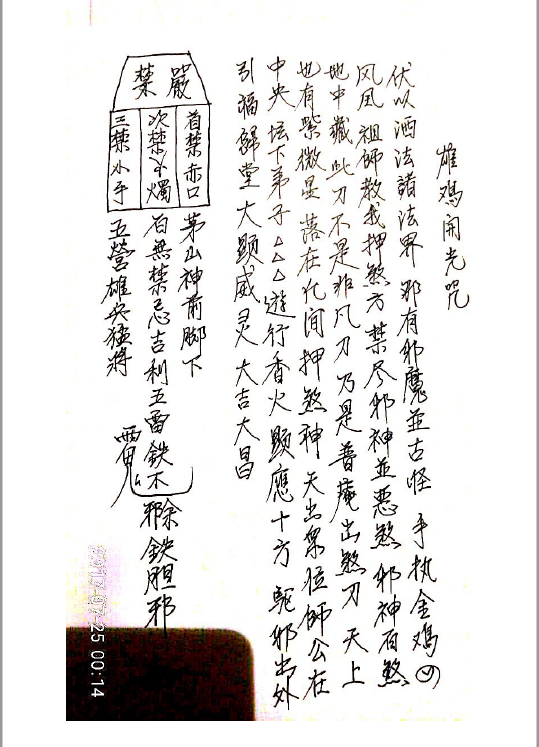 雄鸡開光咒
伏以洒法諸法界 邪有邪魔並古怪 手执金鸡
风凤祖師教我押煞方 禁尽邪神並惡煞 邪神百煞
地中藏 此刀不是非凡刀 乃是普庵出煞刀 天上
也有紫微星 落在化间押煞神 天出眾位師公在
中央 坛下弟子△△△遊行香火顕應十方 驱邪出外
引福歸堂 大顕威灵 大吉大昌
嚴禁
首禁赤口
次禁火燭
三禁水手
茅山神前脚下
百無禁忌吉利五雷鉄不
五營雄兵猛將
除
邪鉄胆邪
2017-07-25 00:14